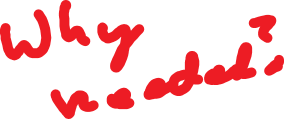 Why
needed?